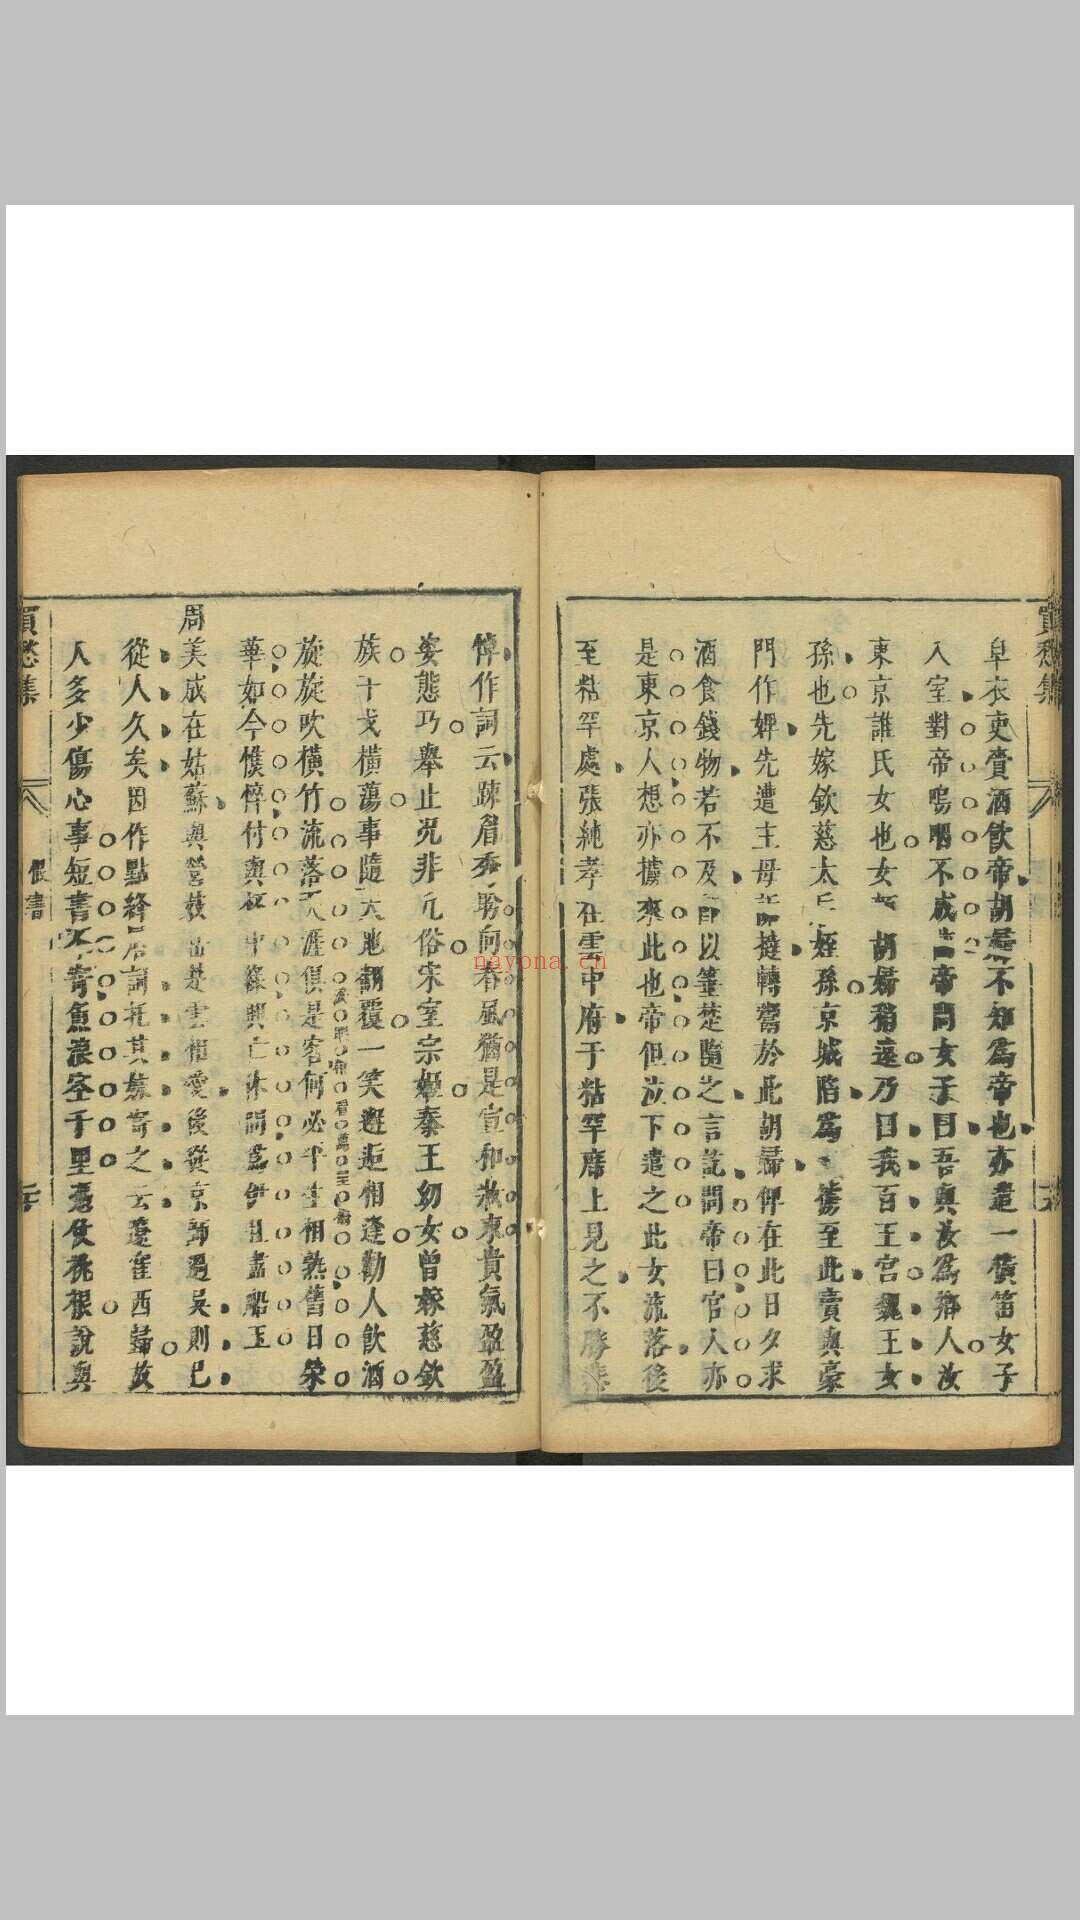 皁衣吏賫酒飲帝胡婦不知為帝也亦遣一橫笛女子
入室對帝嗚咽不成 帝問女子曰吾與汝為鄉人汝
東京誰氏女也女 胡婦稍遠乃曰我百王宮魏王女
孫也先嫁欽慈太后姪孫京城陷為 擄至此賣與豪
門作婢先遭主母 撻轉鬻於此胡婦俾在此日夕求
酒食錢物若不及即以箠楚隨之言訖問帝曰官人亦
是東京人想亦擄來此也帝但泣下遣之此女流落後
至粘罕處張純孝在雲中府于粘罕席上見之不勝悲
悼作詞云疎眉秀盼向春風猶是宣和妝束貴氣盈盈
姿態巧舉止况非凡俗宋室宗姬秦王幼女曾嫁慈欽
族干戈橫蕩事隨天地翻覆一笑邂逅相逢勸人飲酒
旋旋吹橫竹流落天涯俱是客何必平生相熟舊日榮
華如今憔悴付與杯中醁興亡休問為伊且盡船玉
周美成在姑蘇與營妓岳楚雲相愛後從京師過吳則已
從人久矣因作點絳唇詞托其妹寄之云遼隺西歸故
人多少傷心事短書不寄魚浪空千里憑仗桃根說與
買愁集
買愁集
恨書
nayona.cn